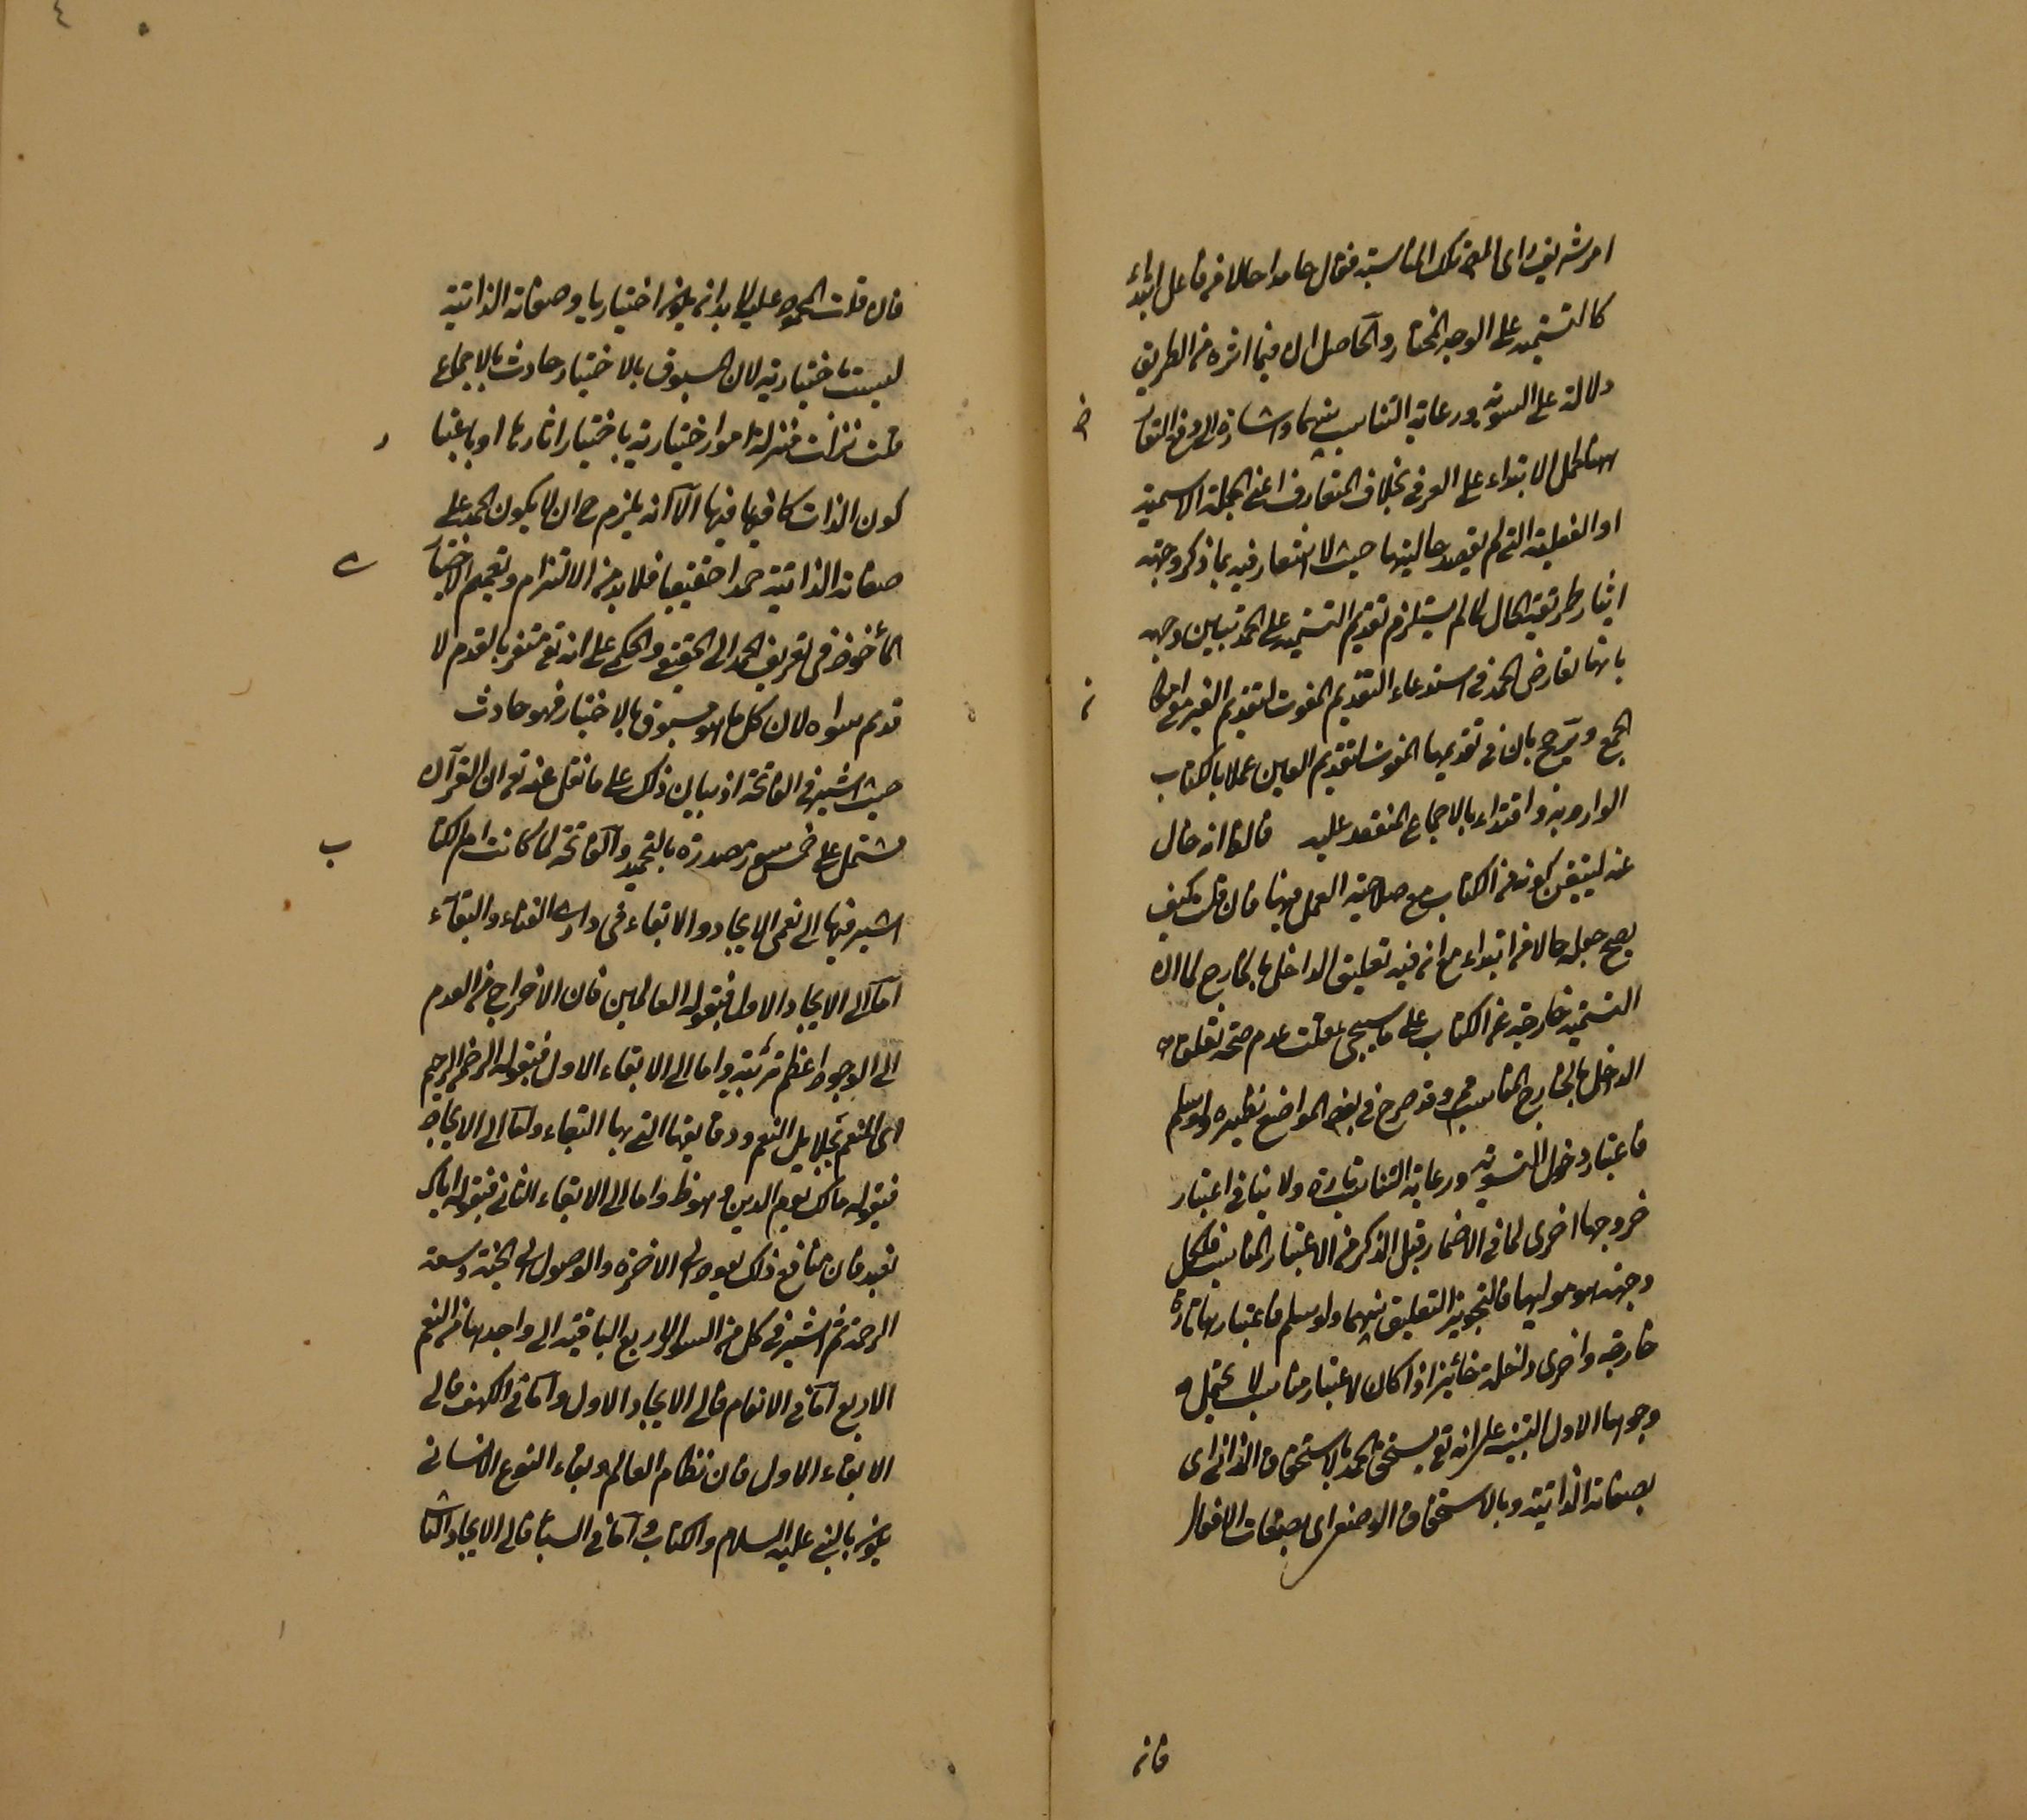 امر شريف راى المص تلك المناسبة فقال حامدا حالا من فاعل ابتداء
كالتسمية على الوجه المختار والحاصل ان فيما اثره من الطريق
دلالة على التسوية ورعاية التناسب بينهما واشارة الى دفع التعا
رض
بحمل الابتداء على العرفى بخلاف المتعارف اعنى الجملة الاسمية
او الفعلية التى لم يقصد حاليتها حيث لا اشعار فيه بما ذكر وجهة
ايثار طريقة الحال لما لم يستلزم تقديم التسمية على الحمد تبيين وجهه
بانها تعارض الحمد فى استدعاء التقديم المفوت لتقديم الغير مع امكا
ن
الجمع وترجح بان فى تقديمها المفوت لتقديم العين عملا بالكتاب
الوارد به واقتداء بالاجماع المنعقد عليه قال
كونه من الكتاب مع صلاحية العمل فيها فان قلت كيف
يصح جعله حالا من ابتداء مع انه فيه تعليق الداخل بالخارج لما ان
التسمية خارجة عن الكتاب على ما سيجئ قلت عدم صحة تعلق
الداخل بالخارج المناسب وقد صرح فى بعض المواضع نظيره ولو سلم
فاعتبار دخول التسوية ورعاية التناسب تارة ولا ينافى اعتبار
خروجها اخرى لما فى الاضمار قبل الذكر من الاعتبار المناسب فلكل
وجهة هو موليها فالتجويز التعليق بينهما ولو سلم فاعتبارها تارة
خارجة واخرى داخلة جائز اذا كان لاعتبار مناسب لا
وجوها الاول التنبيه على انه تع يستحق الحمد بالاستحقاق الذاتى اى
بصفاته الذاتية وبالاستحقاق الوصفى اى بصفات الافعال
فان
٤
فان قلت المحمود عليه لا بد ان يكون اختياريا وصفاته الذاتية
ليست باختيارية لان المسبوق بالاختيار حادث بالاجماع
قلت نزلت منزلة امور اختيارية باختيار اثارها او باعتبا
ر
كون الذات كافيا فيها الا انه يلزم ح ان لا يكون الحمد على
صفاته الذاتية حمدا حقيقيا فلا بد من الالتزام وتعميم الاختيا
ر
المأخوذ فى تعريف الحمد الى الحقيقى والحكمى على انه تع متفرد بالقدم لا
قديم سواه لان كل ما هو مسبوق بالاختيار فهو حادث
حيث اشير فى الفاتحة اذ بيان ذلك على ما نقل عنه تع ان القرآن
مشتمل على خمس سور مصدرة بالتحميد والفاتحة لما كانت ام الكتا
ب
اشير فيها الى نعمى الايجاد والابقاء فى دارى الفناء والبقاء
اما الى الايجاد الاول فبقوله العالمين فان الاخراج من العدم
الى الوجود اعظم تربية واما الى الابقاء الاول فبقوله الرحمن الرحيم
اى المنعم بجلايل النعم ودقايقها التى بها البقاء واما الى الايجاد
فبقوله مالك يوم الدين وهو ظ واما الى الابقاء الثانى فبقوله اياك
نعبد فان منافع ذلك يعود الى الاخرة والوصول الى الجنة وسعة
الرحمة ثم اشير فى كل من السور الاربع الباقية الى واحد من النعم
الاربع اما فى الانعام فالى الايجاد الاول واما فى الكهف فالى
الابقاء الاول فان نظام العالم وبقاء النوع الانسانى
يكون بالنبى عليه السلام والكتاب واما فى السبأ فالى الايجاد الثا